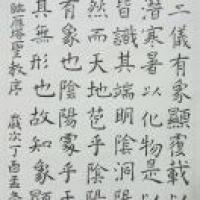 二儀有象顯覆載以
潛寒暑以化物是以
皆識其端明陰洞陽
然而天地苞乎陰陽
有象也陰陽處乎天
其無形也故知象顯
臨雁塔聖教序 歲次丁酉孟